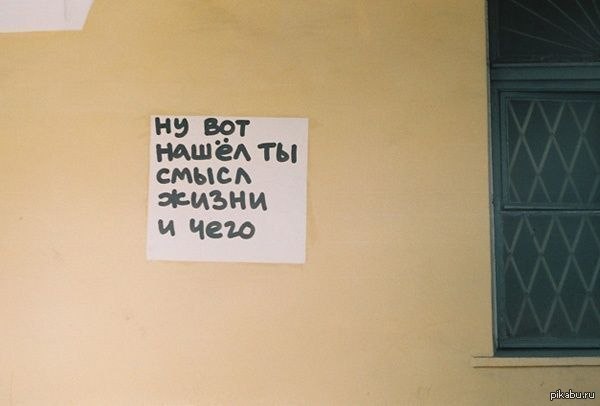 ну вот
нашёл ты
смысл
жизни
и чего
pikabu.ru